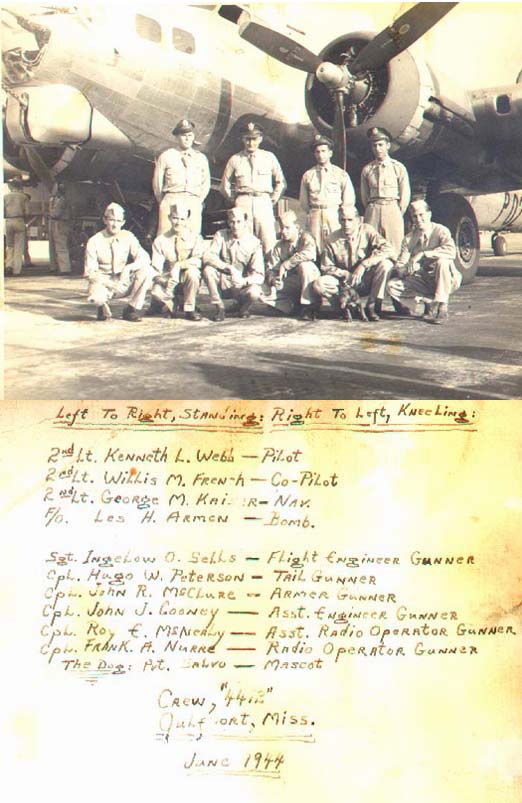 Left To Right, Standing: Right To Left, Kneeling:
2nd Lt. Kenneth L. Webb — Pilot
2nd Lt. Willis M. French — Co-Pilot
2nd Lt. George M. — Nav.
F/O. Les H. Armen — Bomb.
Sgt. Ingelow O. Sells — Flight Engineer Gunner
Cpl. Hugo W. Peterson — Tail Gunner
Cpl. John R. McClure — Armer Gunner
Cpl. John J. Cooney — Asst. Engineer Gunner
Cpl. Roy E. McNealy — Asst. Radio Operator Gunner
Cpl. Frank A. Nurre — Radio Operator Gunner
The Dog: Pvt. Salvo — Mascot
Crew,
Gulfport, Miss.
June 1944